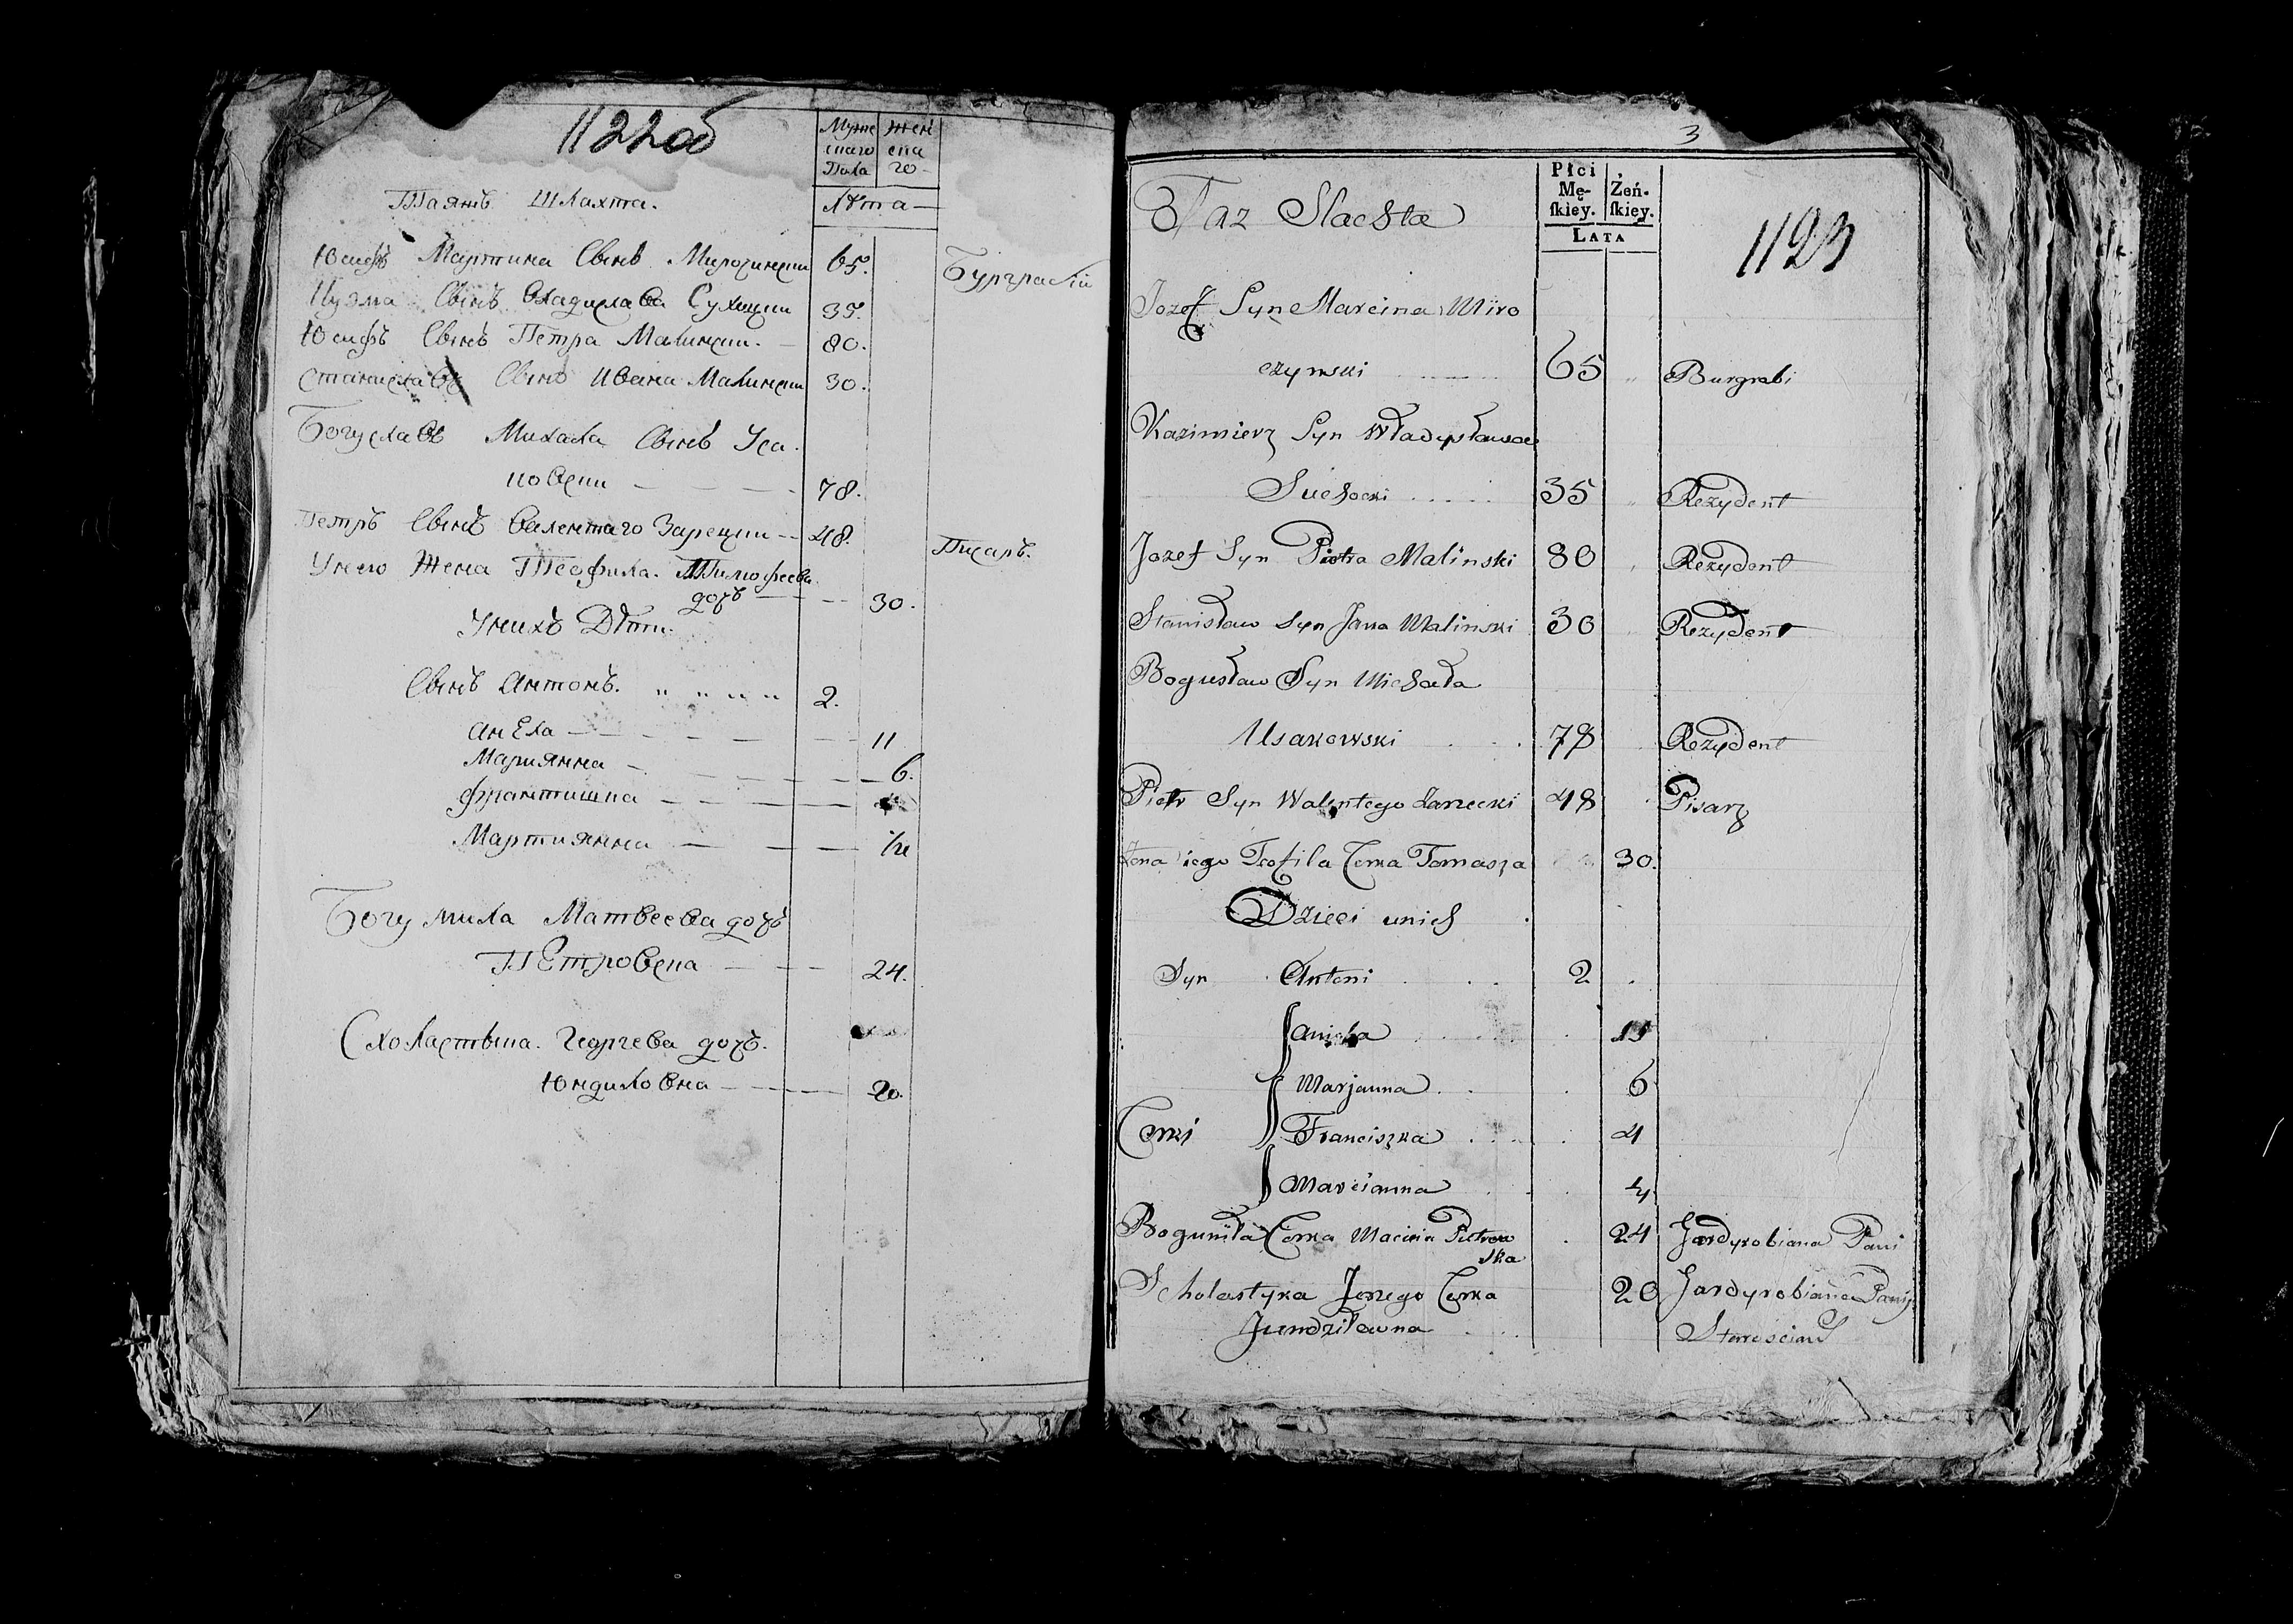 1122об
Муже Жен
скаго ска
Пола го
Лѣта
Таяжъ Шляхта.
Юсифъ Мартина Сынъ Мирочински 65. Бурграбїй
Кузма Сынъ Владислава Сухоцки 35.
Юсифъ Сынъ Петра Малински. 80.
Станиславъ Сынъ Ивана Малински 30.
Богуславъ Михала Сынъ Уса
ковски 78.
Петръ Сынъ Валентаго Зарецки 48. Писаръ.
Унего Жена Теофила. Тимофеева
дочъ 30.
Унихъ Дѣти.
Сынъ Антонъ. 2.
Анела 11
Марианна 6.
Франтишка
Мартиянна
Богумила Матвеева дочъ
Петровска 24.
Схоластыка. Георгева дочъ.
Юндиловна 20.
3
Płci
Mę- Żeń-
skiey. skiey.
Lata
1123
Taz Slachta
Jozef Syn Marcina Miro
czynski 65 Burgrabi
Kazimierz Syn Władysława
Suchocki 35 Rezydent
Jozef Syn Piotra Malinski 80 Rezydent
Stanisław Syn Jana Malinski 30 Rezydent
Bogusław Syn Michała
Usakowski 78 Rezydent
Piotr Syn Walentego Zarzecki 48 Pisarz
Żona iego Teofila Corka Tomasza 30.
Dzieci unich
Syn Antoni 2
Aniela 11
Marjanna 6
Corki Franciszka 4
Marcianna
Bogumiła Corka Macieia Pietrow
ska 24 Gardyrobiana Pani
Scholastyka Jerzego Corka 20 Gardyrobiana Paniy
Jundziłowna Starościan